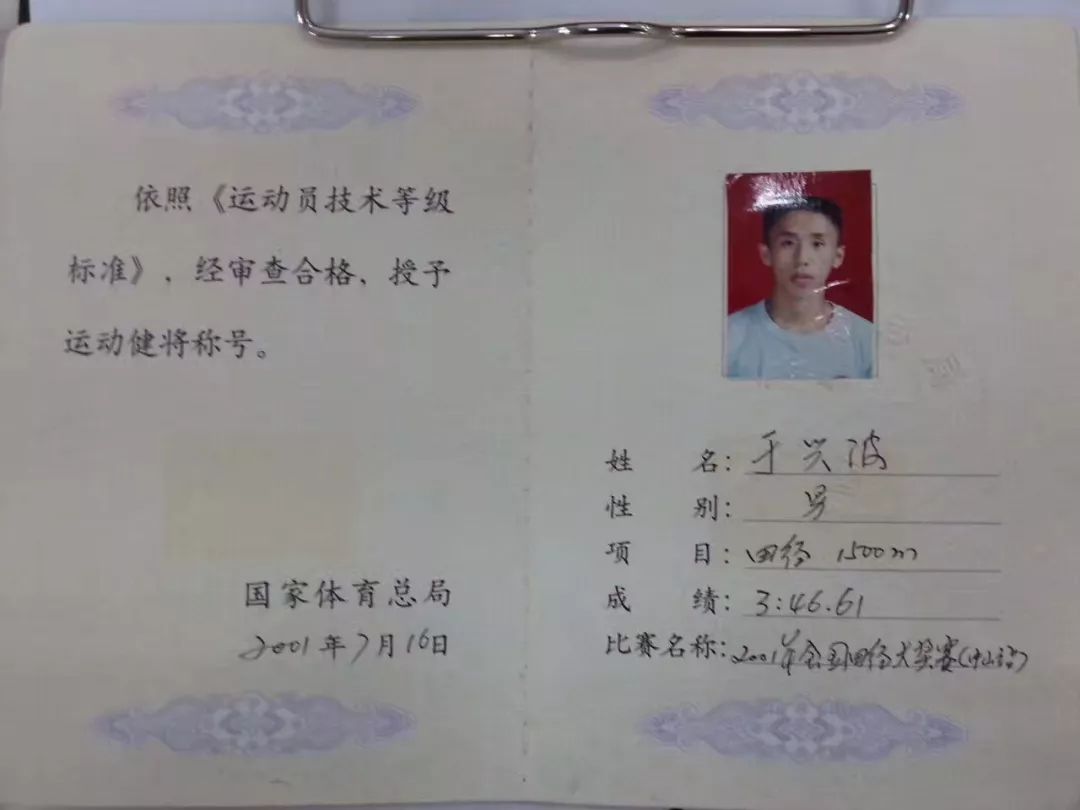 依照《运动员技术等级
标准》，经审查合格，授予
运动健将称号。
国家体育总局
2001年7月16日
姓 名：于兴波
性 别：男
项 目：田径 1500m
成 绩：3:46.61
比赛名称：2001年全国田径大奖赛(中山站)